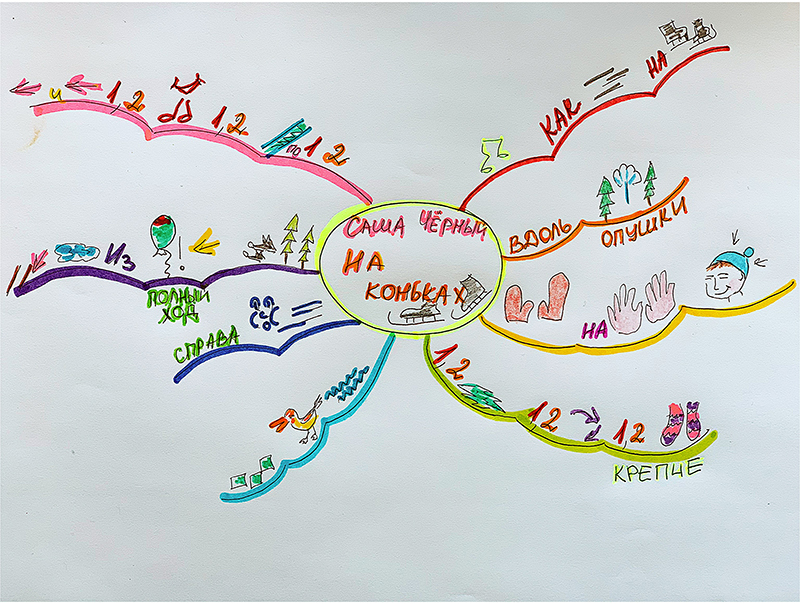 САША ЧЁРНЫЙ
НА
КОНЬКАХ
КАК НА
ВДОЛЬ ОПУШКИ
НА
1,2
1,2
1,2
КРЕПЧЕ
СПРАВА
ИЗ
!
ПОЛНЫЙ
ХОД
И 1,2
1,2
1,2